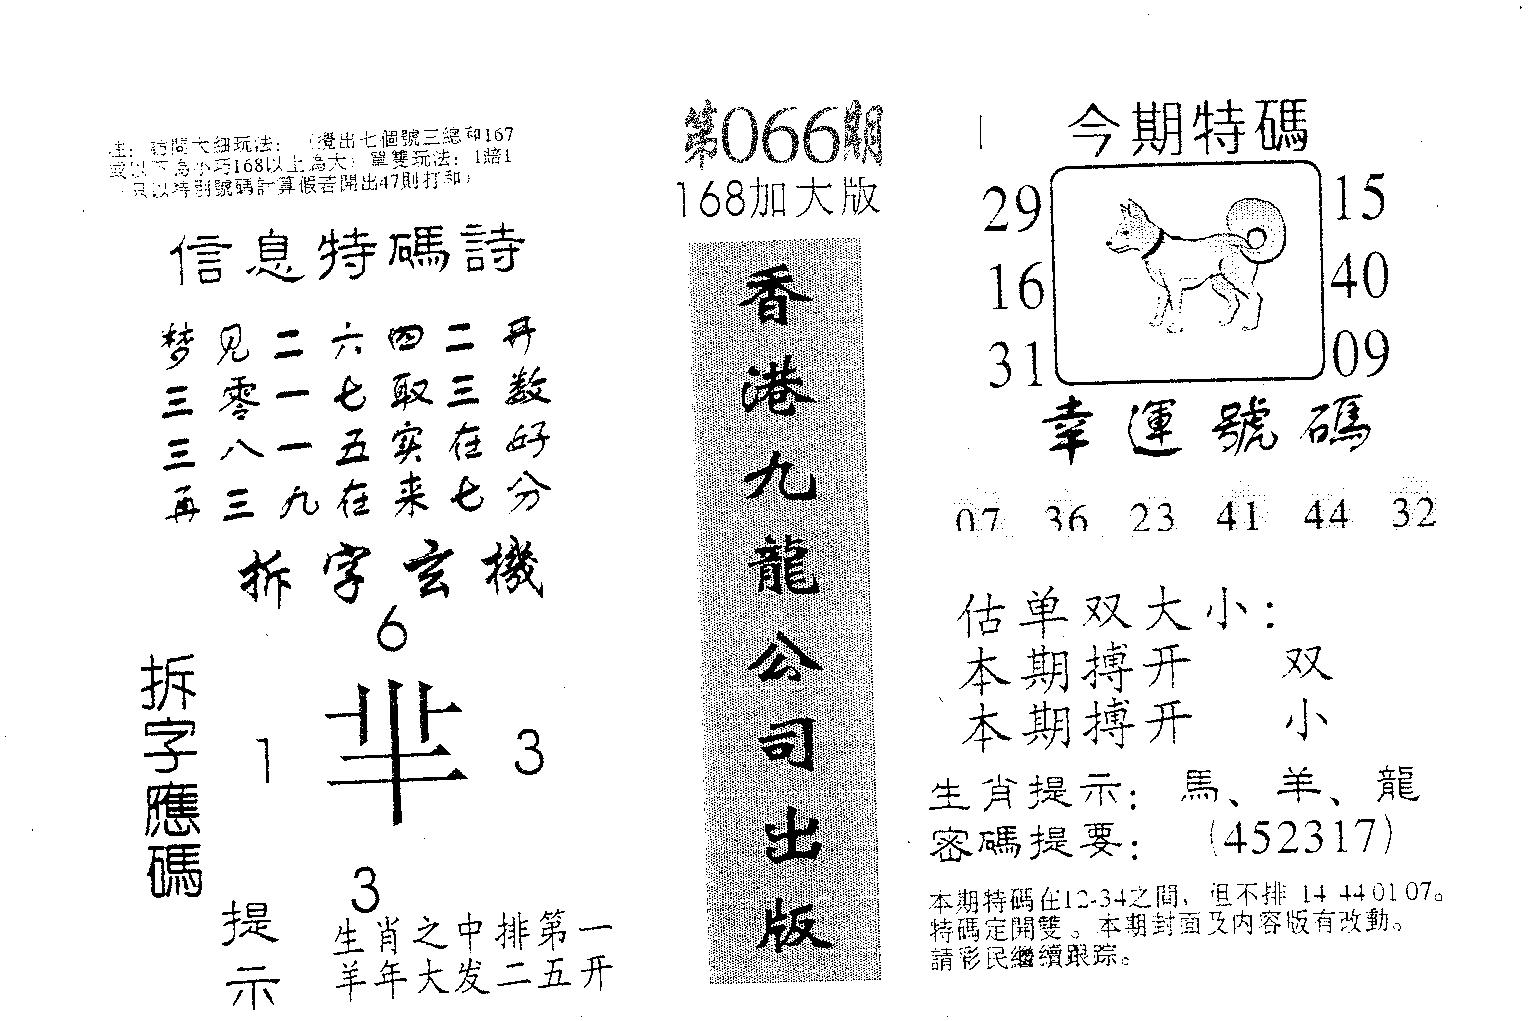 註：訪問大細玩法：（攪出七個號三總和167
或以下為小巧168以上為大）單雙玩法：1賠1
（只以特別號碼計算假若開出47則打和）
信息特碼詩
梦见二六四二开
三零一七取三数
三八一五实在好
再三九在来七分
拆字玄機
6
1
3
3
拆字應碼
提示
生肖之中排第一
羊年大发二五开
第066期
168加大版
香港九龍公司出版
今期特碼
29 15
16 40
31 09
幸運號碼
07 36 23 41 44 32
估单双大小：
本期搏开 双
本期搏开 小
生肖提示：馬、羊、龍
密碼提要：（452317）
本期特碼在12-34之間，但不排 14 44 01 07。
特碼定開雙。本期封面及内容版有改動。
請彩民繼續跟踪。